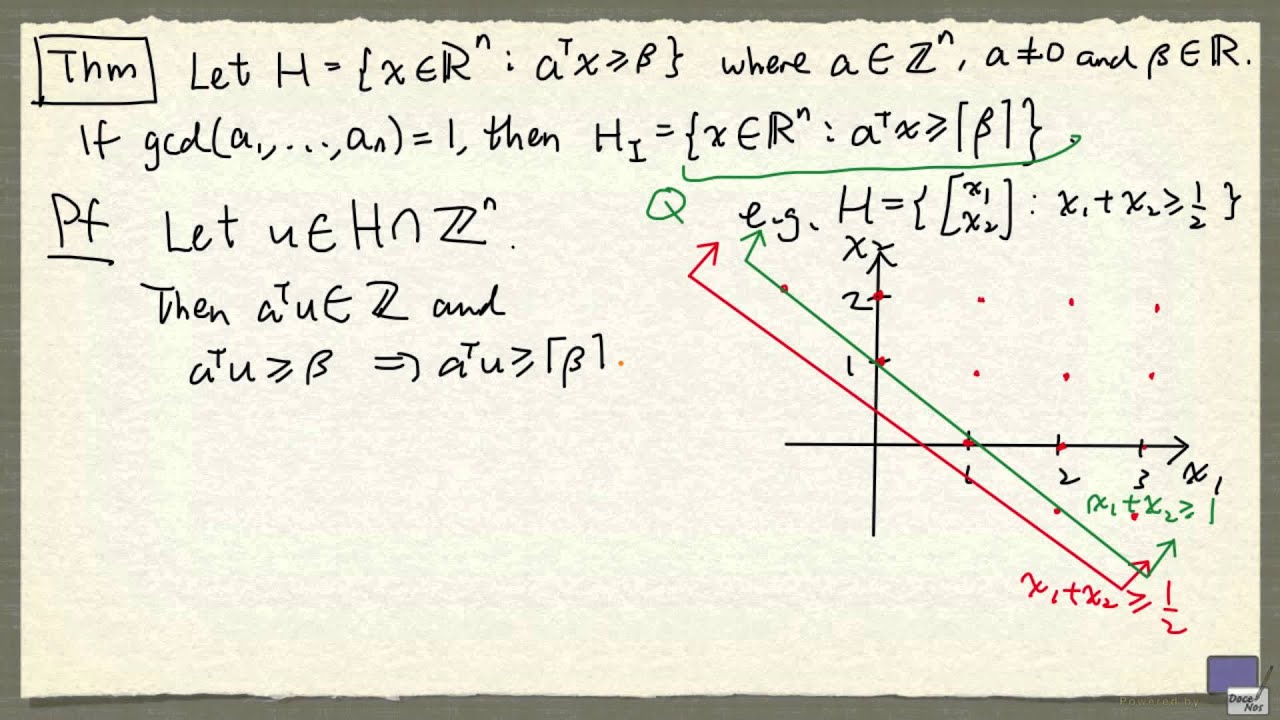 Thm Let H = {x ∈ ℝⁿ : aᵀx ≥ β} where a ∈ ℤⁿ, a ≠ 0 and β ∈ ℝ.
If gcd(a₁,...,aₙ) = 1, then H_I = {x ∈ ℝⁿ : aᵀx ≥ ⌈β⌉}.
Q
e.g. H = { [x₁ x₂] : x₁ + x₂ ≥ 1/2 }
Pf Let u ∈ H ∩ ℤⁿ.
Then aᵀu ∈ ℤ and
aᵀu ≥ β ⇒ aᵀu ≥ ⌈β⌉.
2
1
1 2 3 x₁
x₁ + x₂ ≥ 1
x₁ + x₂ ≥ 1/2
Powered by
Doce Nos